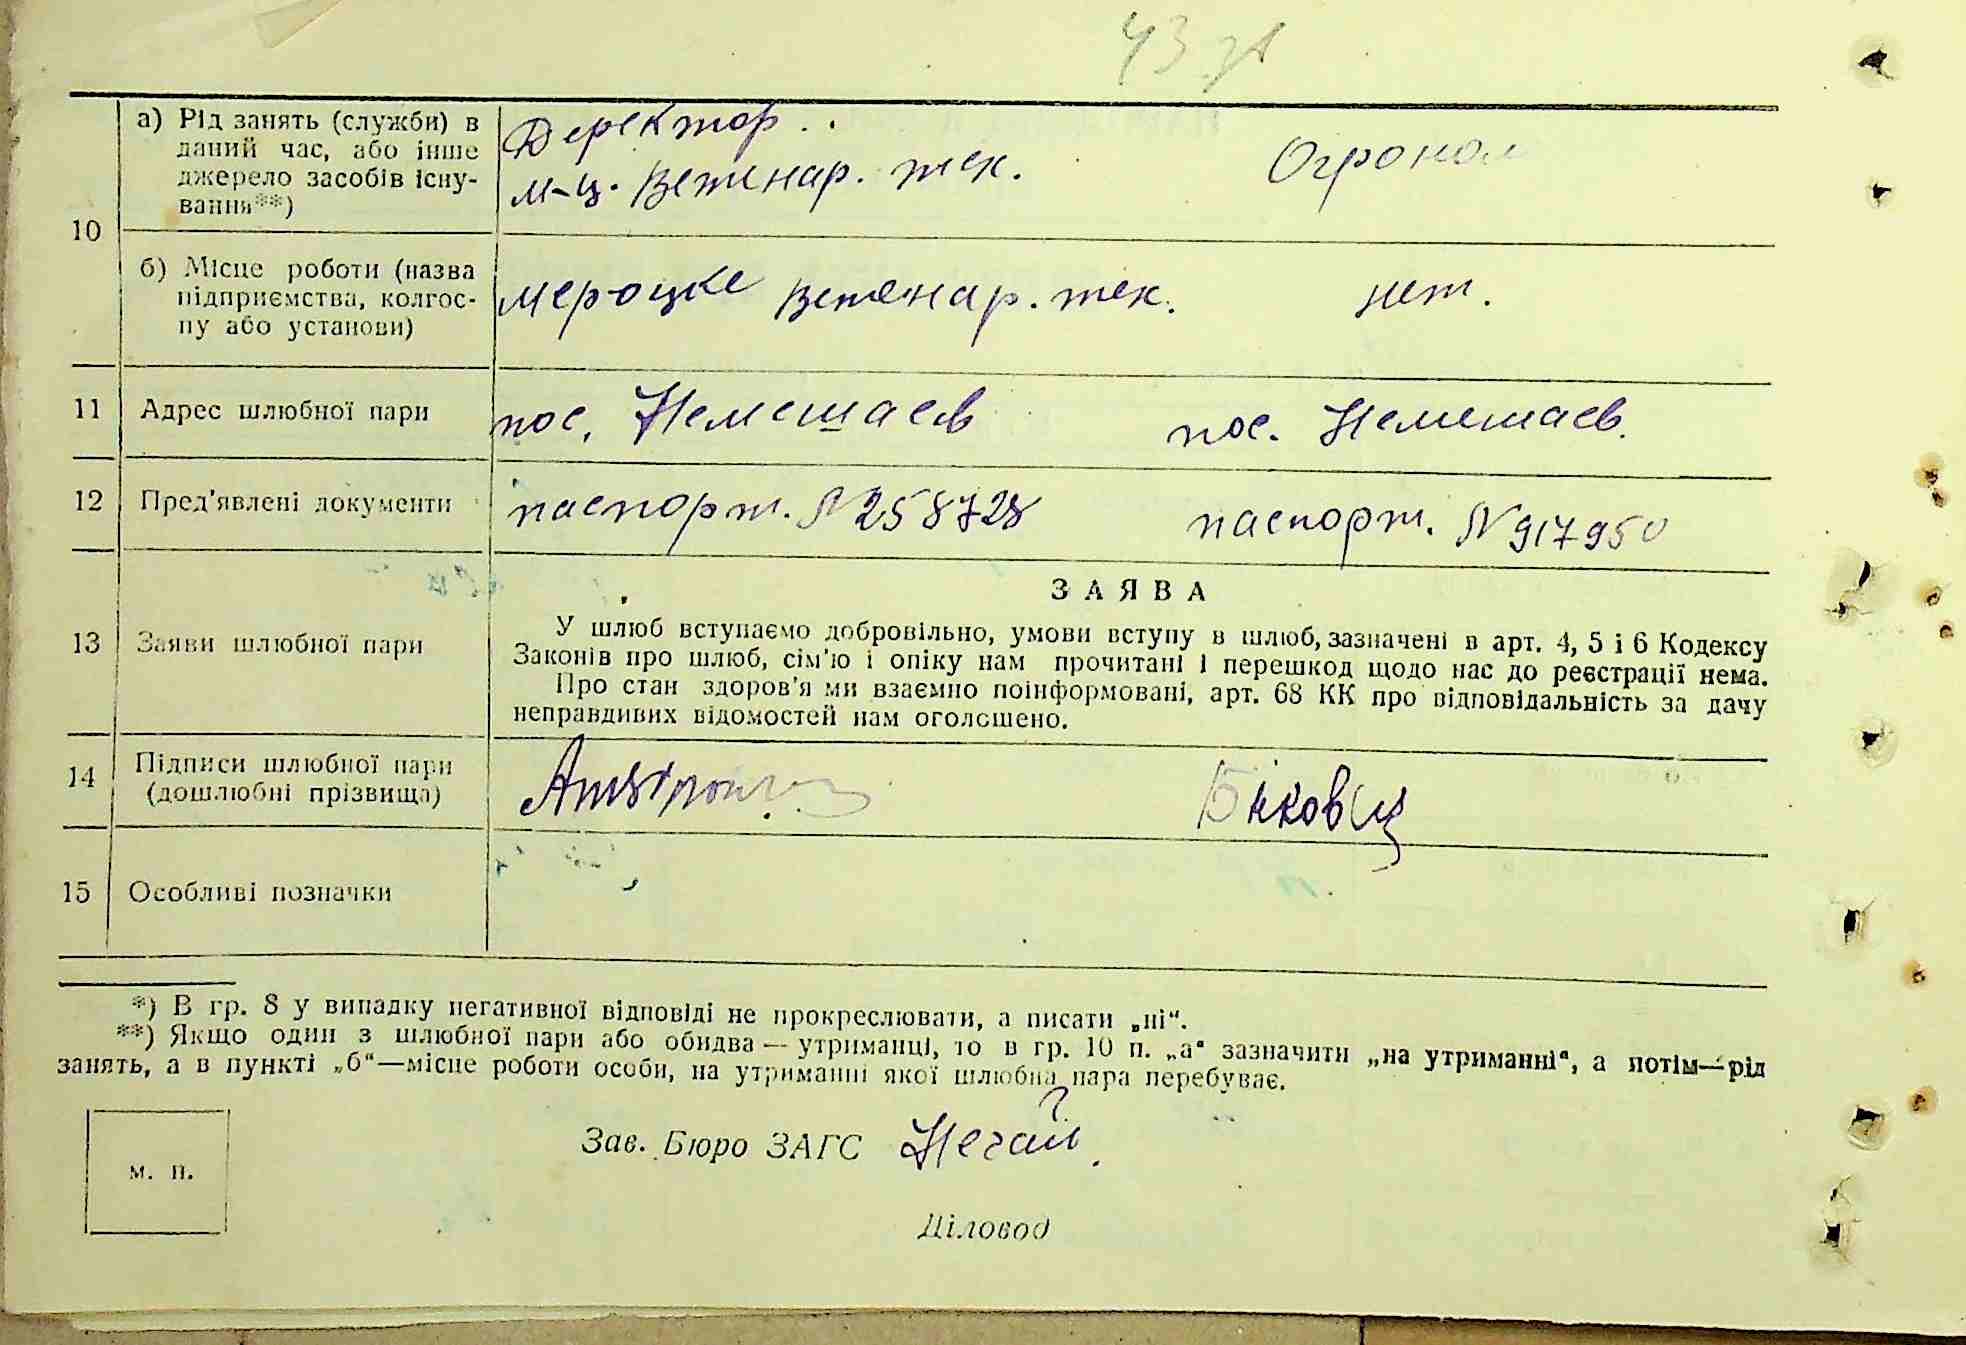 43 зв
10
а) Рід занять (служби) в
даний час, або інше
джерело засобів існу-
вання**)
Деректор
м-ц. ветенар. тех.
Огроном
б) Місце роботи (назва
підприємства, колгос-
пу або установи)
мероцке ветенар. тех.
нет.
11 Адрес шлюбної пари
пос. Немешаев
пос. Немешаев.
12 Пред'явлені документи
паспорт. N 258728
паспорт. N 917950
13 Заяви шлюбної пари
ЗАЯВА
У шлюб вступаємо добровільно, умови вступу в шлюб, зазначені в арт. 4, 5 і 6 Кодексу
Законів про шлюб, сім'ю і опіку нам прочитані і перешкод щодо нас до реєстрації нема.
Про стан здоров'я ми взаємно поінформовані, арт. 68 КК про відповідальність за дачу
неправдивих відомостей нам оголошено.
14 Підписи шлюбної пари
(дошлюбні прізвища)
15 Особливі позначки
*) В гр. 8 у випадку негативної відповіді не прокреслювати, а писати „ні“.
**) Якщо один з шлюбної пари або обидва — утриманці, то в гр. 10 п. „а“ зазначити „на утриманні“, а потім—рід
занять, а в пункті „б“—місце роботи особи, на утриманні якої шлюбна пара перебуває.
м. п.
Зав. Бюро ЗАГС Нечай
Діловод